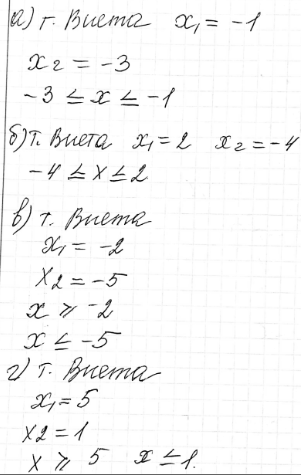 а) т. Виета x₁ = -1
x₂ = -3
-3 ≤ x ≤ -1
б) т. Виета x₁ = 2 x₂ = -4
-4 ≤ x ≤ 2
в) т. Виета
x₁ = -2
x₂ = -5
x ⩾ -2
x ≤ -5
г) т. Виета
x₁ = 5
x₂ = 1
x ⩾ 5 x ≤ 1.